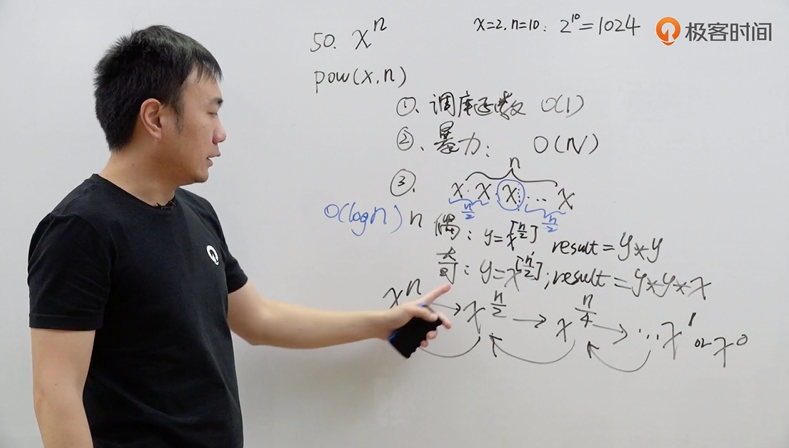 50. xⁿ
x=2, n=10: 2¹⁰=1024
极客时间
pow(x,n)
①. 调库函数 O(1)
②. 暴力: O(N)
n
③. x · x · x ⋯ x
n/2 n/2
O(logn) n
偶: y=x^[n/2] result=y*y
奇: y=x^[n/2]; result=y*y*x
xⁿ → x^(n/2) → x^(n/4) → ⋯ x¹ or x⁰